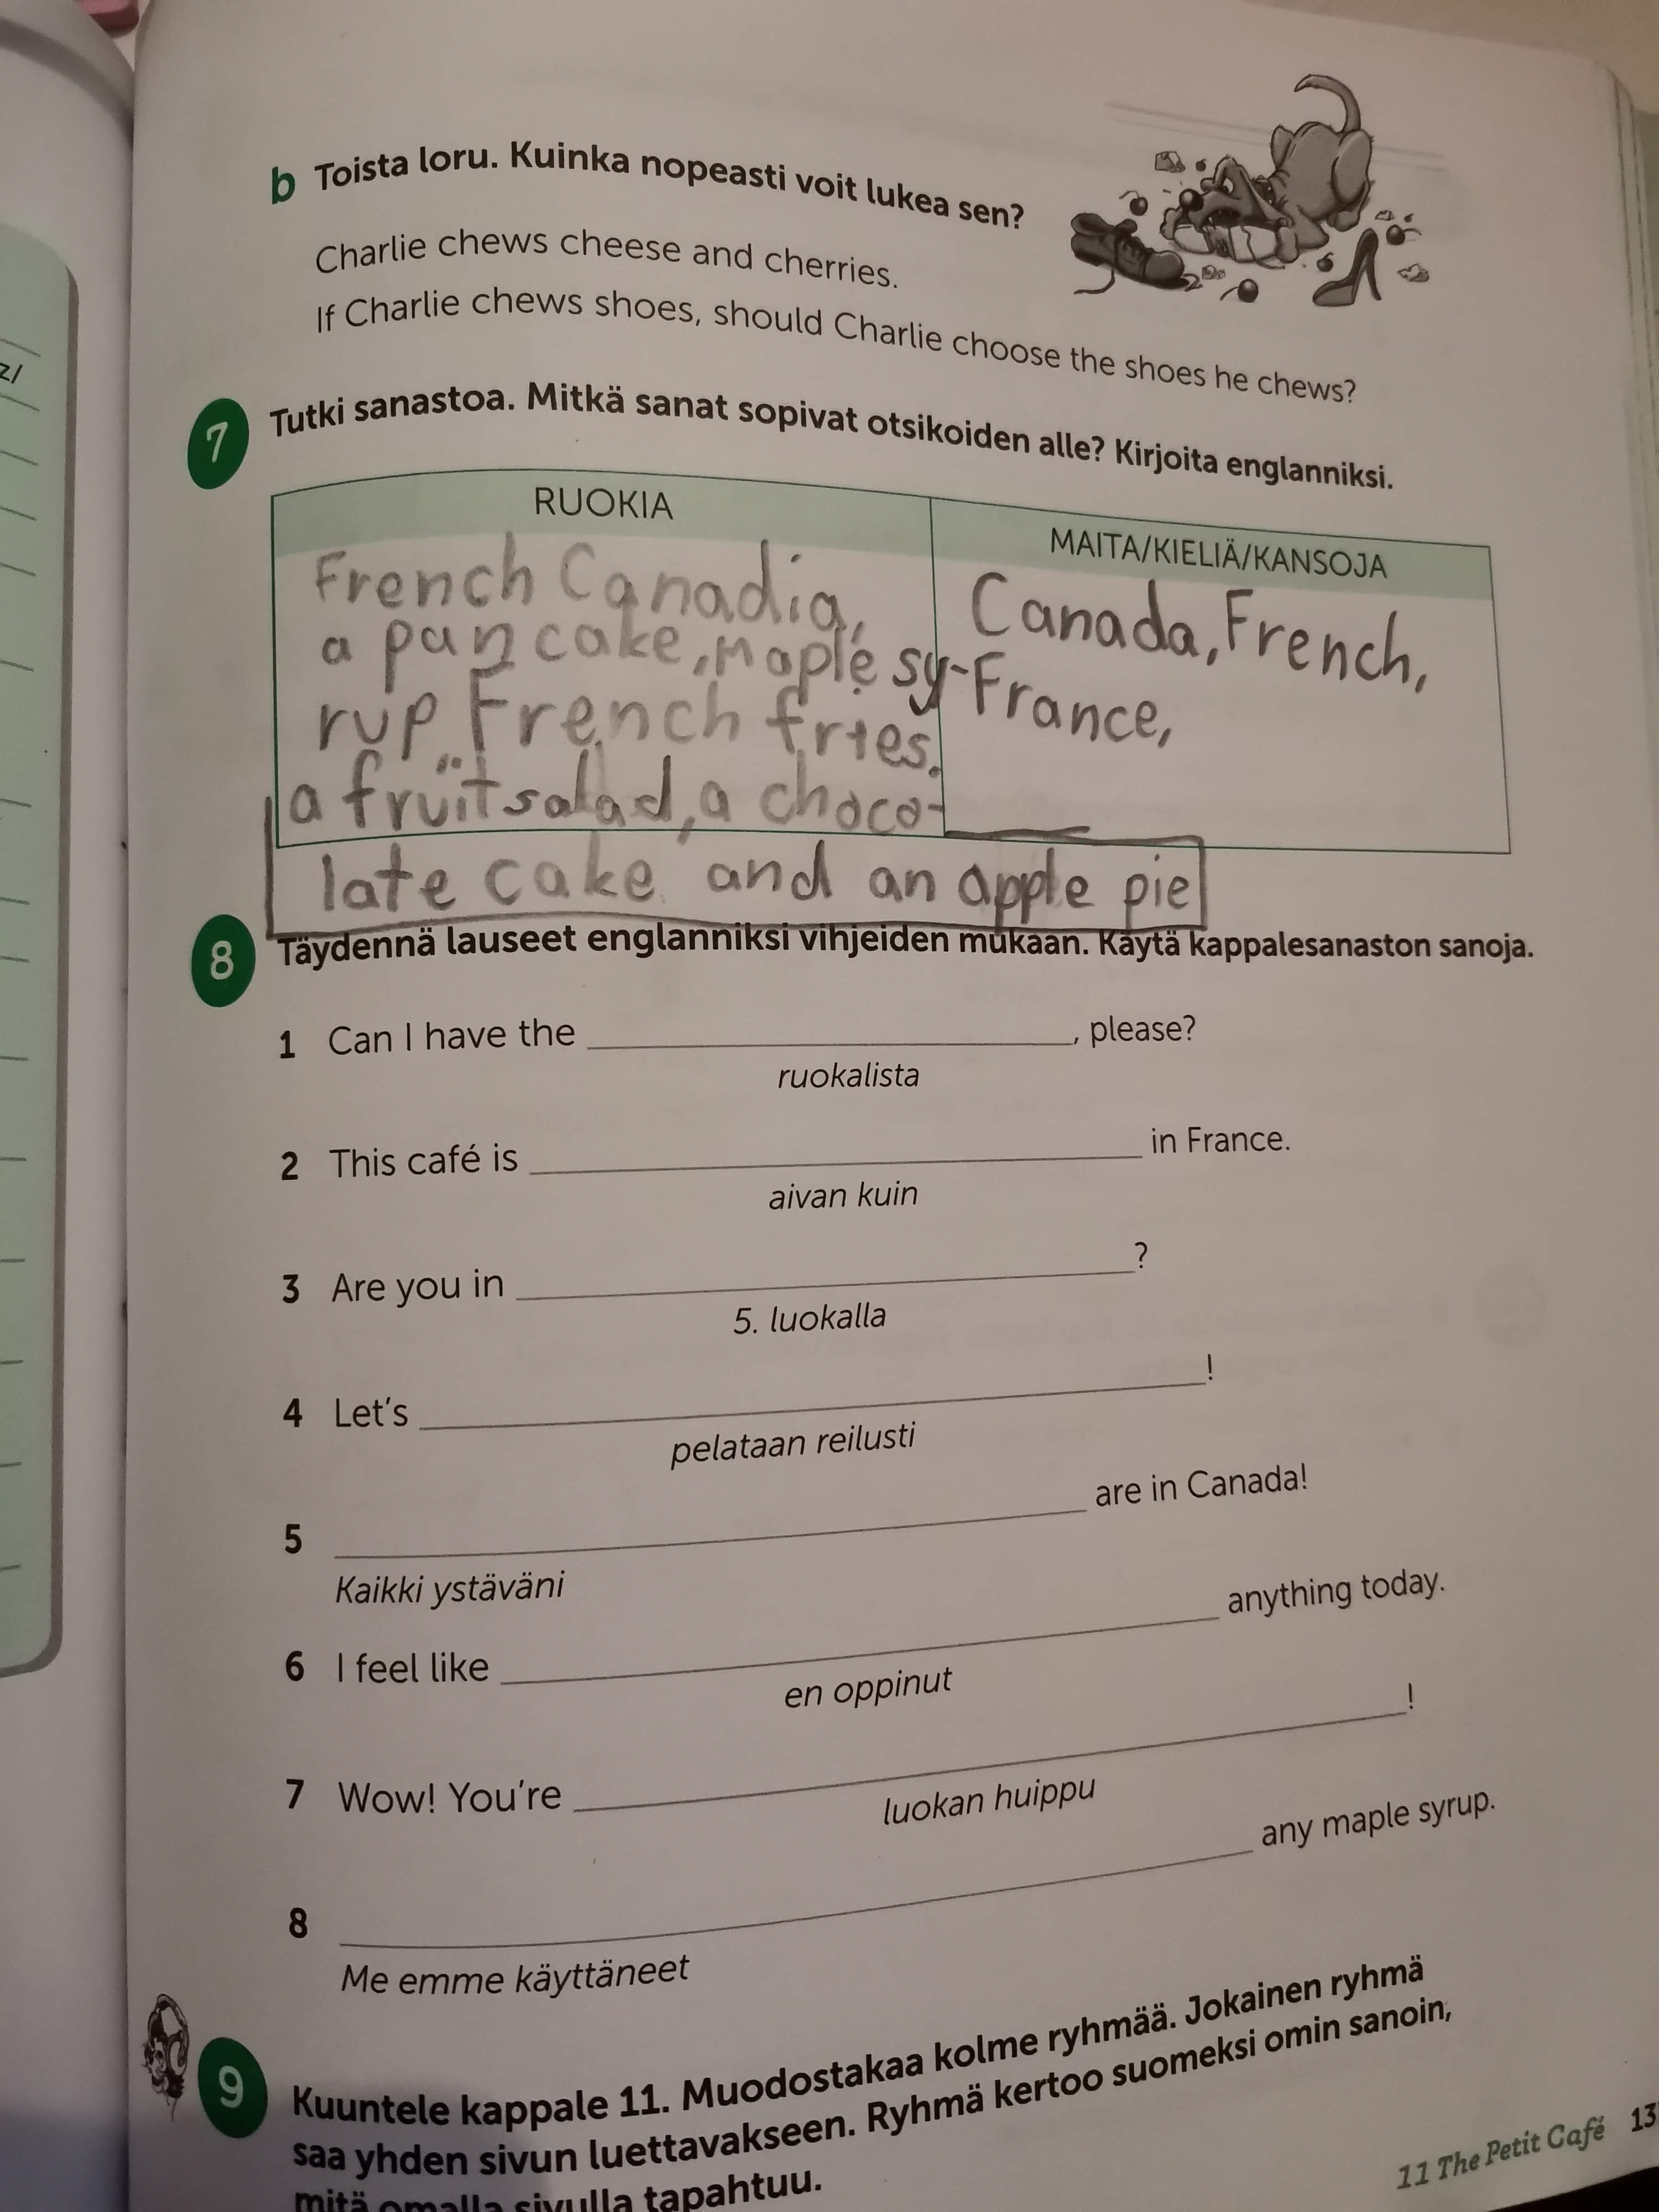 b Toista loru. Kuinka nopeasti voit lukea sen?
Charlie chews cheese and cherries.
If Charlie chews shoes, should Charlie choose the shoes he chews?
z/
7 Tutki sanastoa. Mitkä sanat sopivat otsikoiden alle? Kirjoita englanniksi.
RUOKIA
French Canadia,
a pancake, maple sy-
rup, French fries.
a fruit salad, a choco-
late cake and an apple pie
MAITA/KIELIÄ/KANSOJA
Canada, French,
France,
8 Täydennä lauseet englanniksi vihjeiden mukaan. Käytä kappalesanaston sanoja.
1 Can I have the ____, please?
ruokalista
2 This café is ____ in France.
aivan kuin
3 Are you in ____?
5. luokalla
4 Let's ____!
pelataan reilusti
5 ____ are in Canada!
Kaikki ystäväni
6 I feel like ____ anything today.
en oppinut
7 Wow! You're ____!
luokan huippu
8 ____ any maple syrup.
Me emme käyttäneet
9 Kuuntele kappale 11. Muodostakaa kolme ryhmää. Jokainen ryhmä
saa yhden sivun luettavakseen. Ryhmä kertoo suomeksi omin sanoin,
mitä omalla sivulla tapahtuu.
11 The Petit Café 13